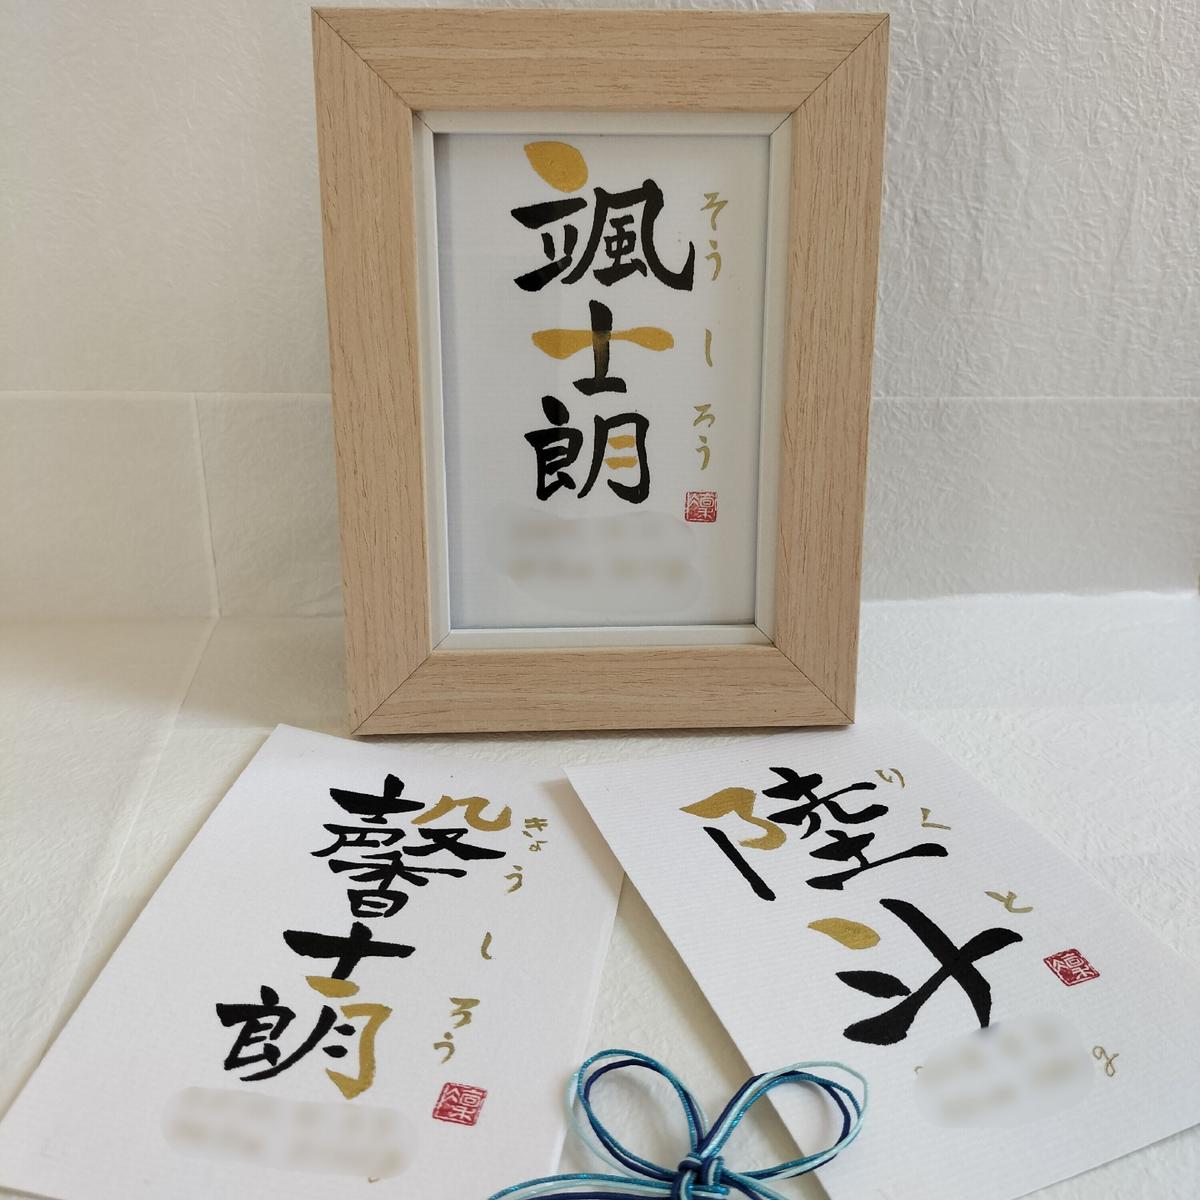 颯士朗
そうしろう
馨士朗
きょうしろう
陸斗
りくと
g